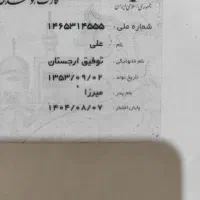 جمهوری اسلامی ایران
شماره ملی: ۱۴۶۵۳۱۴۵۵۵
نام: علی
نام خانوادگی: توفیق ارجستان
تاریخ تولد: ۱۳۵۳/۰۹/۰۲
نام پدر: میرزا
پایان اعتبار: ۱۴۰۴/۰۸/۰۷